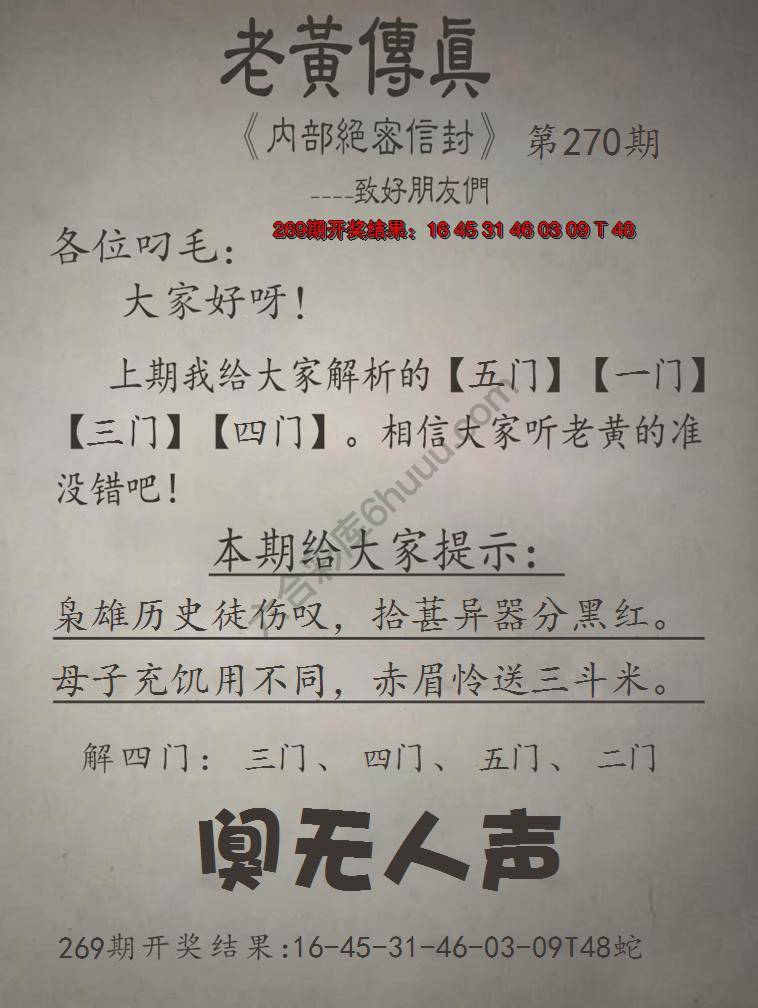 老黃傳真
《內部絕密信封》 第270期
----致好朋友們
269期开奖结果：16 45 31 46 03 09 T 48
各位叼毛：
大家好呀！
上期我给大家解析的【五门】【一门】
【三门】【四门】。相信大家听老黄的准
没错吧！
本期给大家提示：
枭雄历史徒伤叹，拾葚异器分黑红。
母子充饥用不同，赤眉怜送三斗米。
解四门：三门、四门、五门、二门
阒无人声
269期开奖结果:16-45-31-46-03-09T48蛇
六合彩库6huuu.com